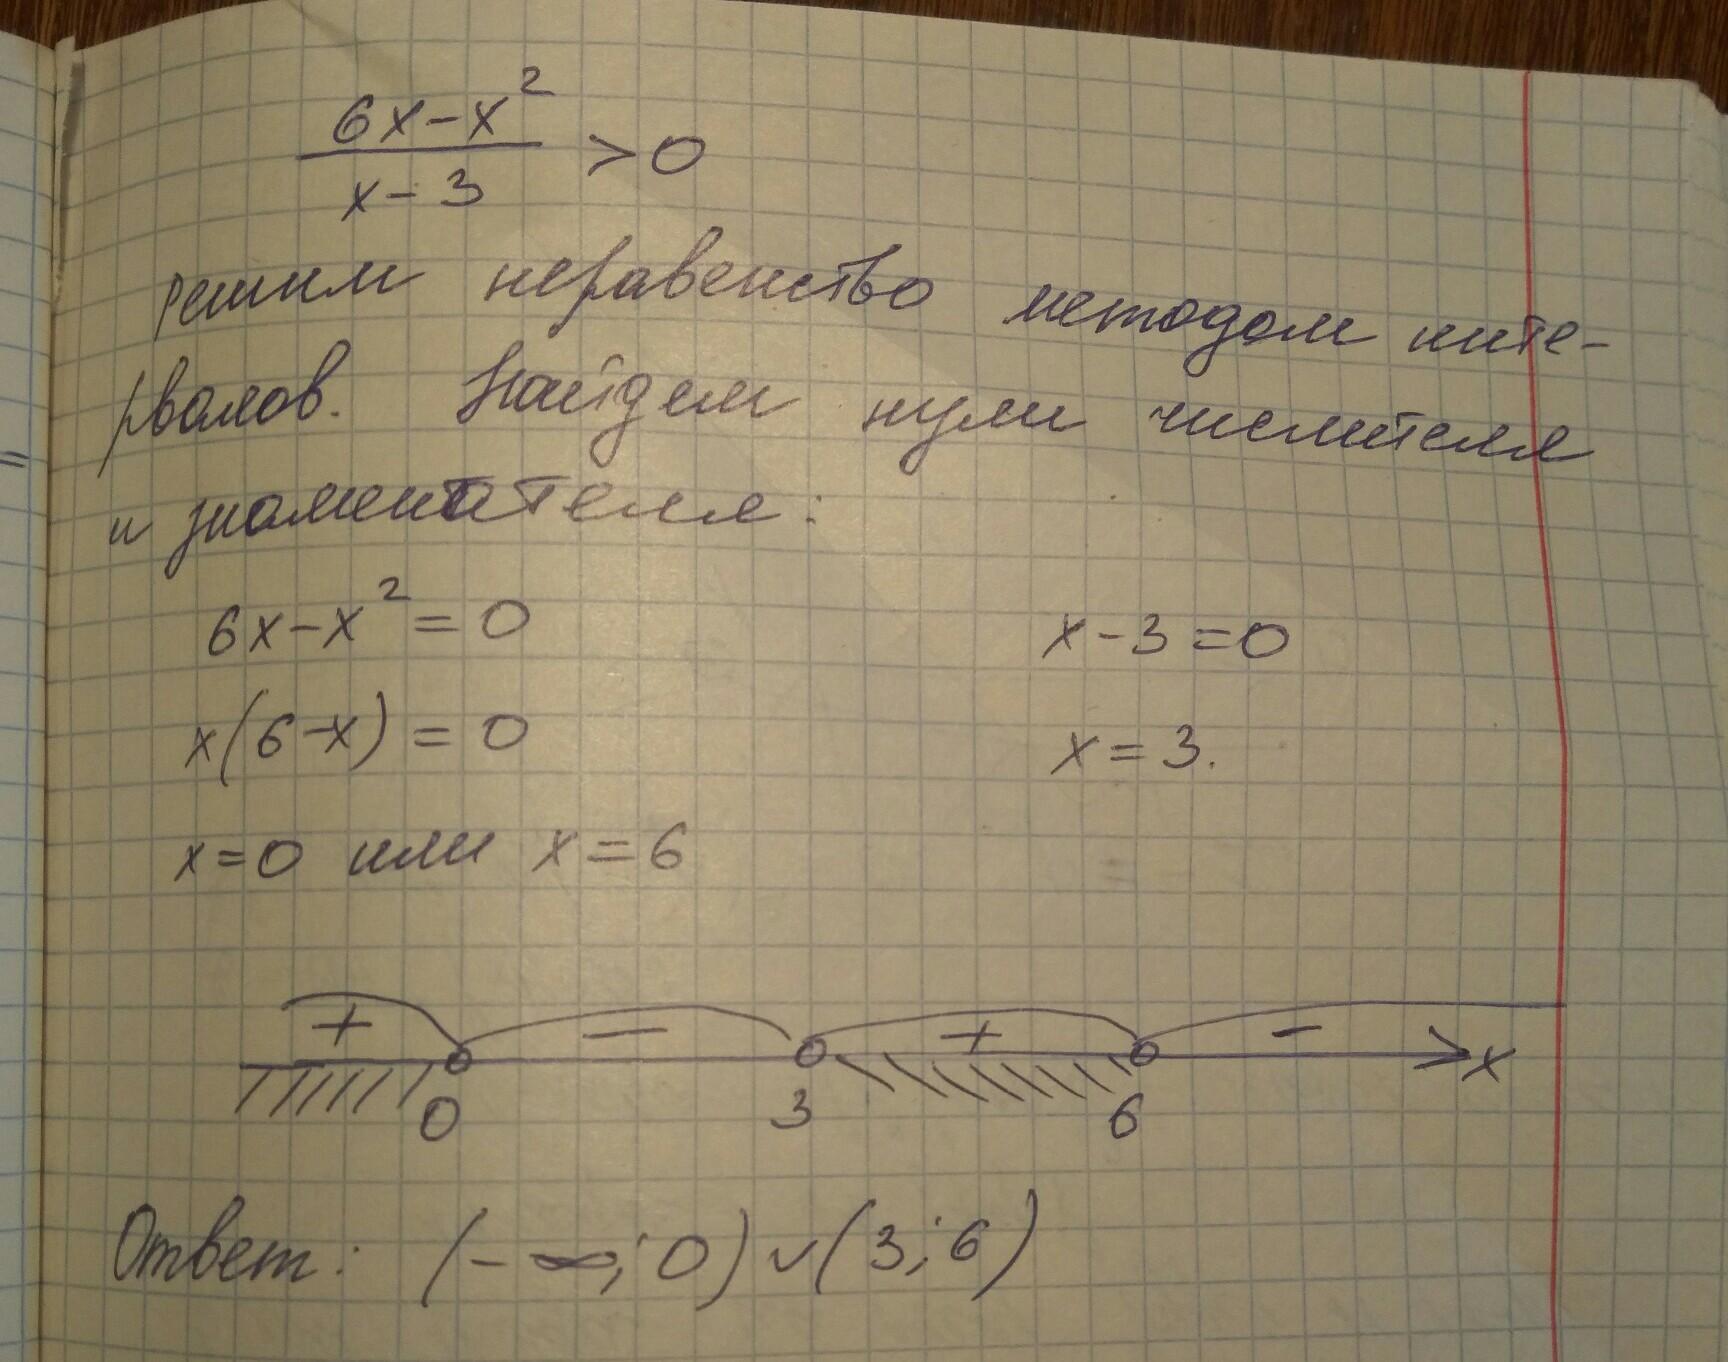 6x-x²
———— >0
x-3
решим неравенство методом инте-
рвалов. Найдем нули числителя
и знаменателя:
6x-x²=0 x-3=0
x(6-x)=0 x=3.
x=0 или x=6
+ — + -
x
0 3 6
Ответ: (-∞;0)∪(3;6)
=